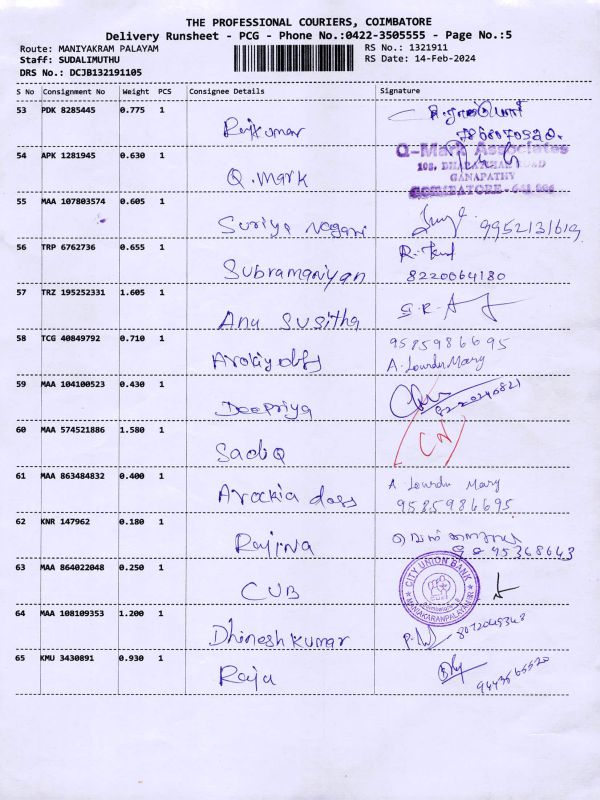 THE PROFESSIONAL COURIERS, COIMBATORE
Delivery Runsheet - PCG - Phone No.:0422-3505555 - Page No.:5
Route: MANIYAKRAM PALAYAM RS No.: 1321911
Staff: SUDALIMUTHU RS Date: 14-Feb-2024
DRS No.: DCJB132191105
S No Consignment No Weight PCS Consignee Details Signature
53 PDK 8285445 0.775 1
Rajkumar
54 APK 1281945 0.630 1 Q-Mark Associates
Q.mark GANAPATHY
COIMBATORE
55 MAA 107803574 0.605 1
Suriya Nagari
56 TRP 6762736 0.655 1
Subramaniyan 8220064180
57 TRZ 195252331 1.605 1
Anu Susitha
58 TCG 40849792 0.710 1 9585986695
A. Lourdu Mary
59 MAA 104100523 0.430 1
Deepriya 8220240821
60 MAA 574521886 1.580 1 CN
SadiQ
61 MAA 863484832 0.400 1 A Lourdu Mary
Arockia dass 9585986695
62 KNR 147962 0.180 1
Rajina
63 MAA 864022048 0.250 1 CITY UNION BANK
CUB
64 MAA 108109353 1.200 1
Dhinesh kumar 8072045348
65 KMU 3430891 0.930 1
Raja 9443565520